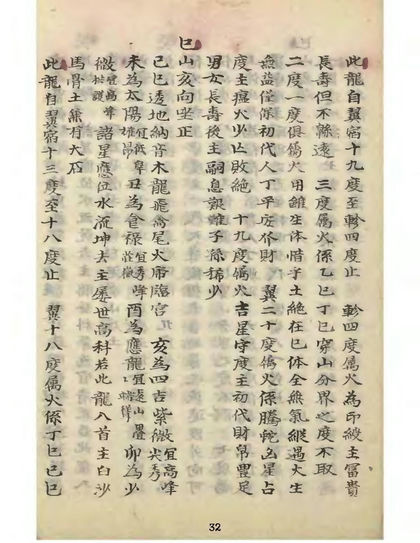 巳
此龍自翼宿十九度至軫四度止 軫四度属火為印綬主富貴
長壽但不緜遠 三度属火係乙巳丁巳穿山分界之度不取
二度一度俱属火用雖生体惜乎土絶在巳体全無氣縱過火生
無益僅係初代人丁平安俗財 翼二十度属火係騰蛇凶星占
度主瘟火少亡敗絶 十九度属火吉星守度主初代財帛豐足
男女長壽後主嗣息艱難子孫稀少
山亥向坐正
己巳透地納音木龍飛喬尾火帝臨宮 亥為四吉紫微宜高峰尖秀
未為太陽宜低阜 丑為倉祿宜秀峰 酉為應龍宜遠山疊 卯為少
微宜高峯 諸星應位水流坤去主屡世高科若此龍入首主白沙
馬骨土無有大石
此龍自翼宿十三度至十八度止 翼十八度属火係丁巳己巳
32